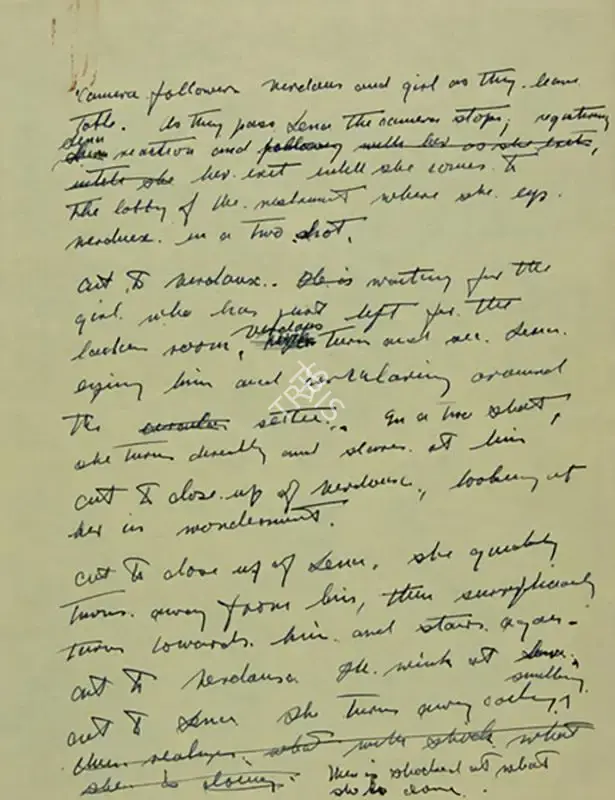 Camera followers Verdoux and girl as they leave
table. As they pass Lena the camera stops, registering
Lena reaction and following with her as she exits,
untill she her exit untill she comes to
the lobby of the resturant where she eys
Verdoux in a two shot.
cut to Verdoux.. He is waiting for the
girl who has just left for the
room, Verdoux turn and see Lena.
eying him and around
the circular settee.. In a two shot,
she turns directly and stares at him
cut to close up of Verdoux, looking at
her in wonderment.
cut to close up of Lena, she quickly
turns away from him, then
turns towards him and stairs again -
cut to Verdoux He wink at Lena.
cut to Lena she turns away smilling
then realizes what with shock what
she is doing. Then is shocked at what
she is done.
TRES BIS